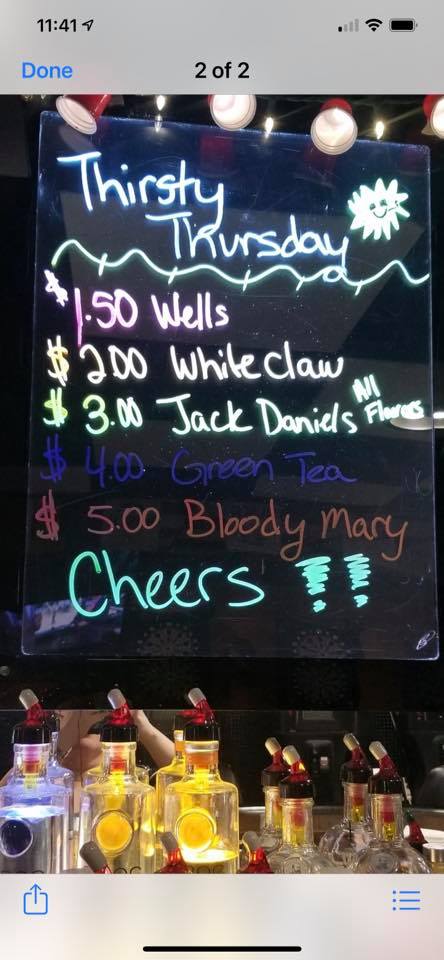 11:41
Done
2 of 2
Thirsty
Thursday
$1.50 Wells
$2.00 Whiteclaw
$3.00 Jack Daniels All Flavors
$4.00 Green Tea
$5.00 Bloody Mary
Cheers !!